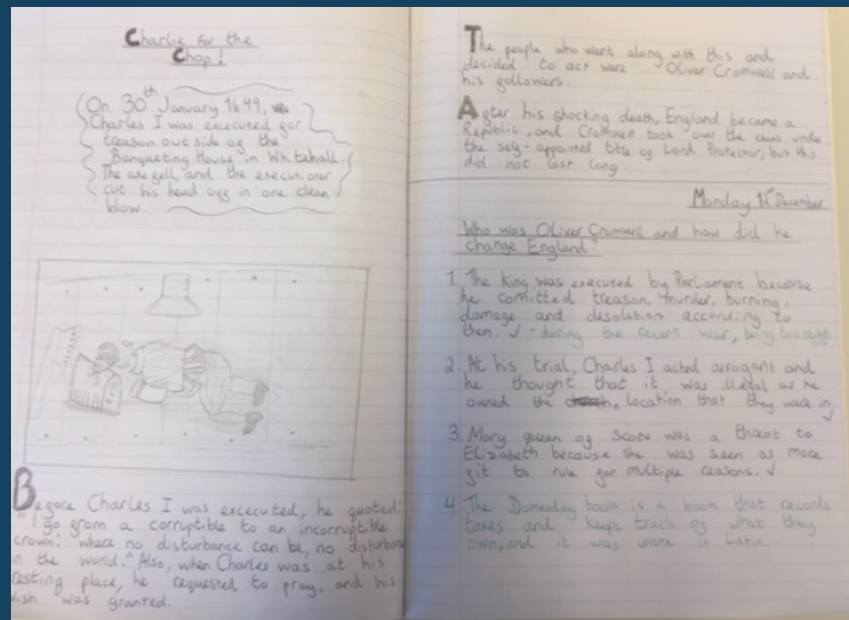 Charlie for the
Chop!
On 30th January 1649,
Charles I was executed for
treason outside of the
Banqueting House in Whitehall.
The axe fell, and the executioner
cut his head off in one clean
blow.
Before Charles I was excecuted, he quoted:
"I go from a corruptible to an incorruptible
crown; where no disturbance can be, no disturbance
in the world." Also, when Charles was at his
resting place, he requested to pray, and his
wish was granted.
The people who went along with this and
decided to act were Oliver Cromwell and
his followers.
After his shocking death, England became a
Republic, and Cromwell took over the reins under
the self-appointed title of Lord Protector, but this
did not last long
Monday 12th December
Who was Oliver Cromwell and how did he
change England?
1. The King was executed by Parliament because
he comitted treason, murder, burning,
damage and desolation according to
them. ✓ - during the recent war, being
2. At his trial, Charles I acted arrogant and
he thought that it was illegal as he
owned the location that they were in. ✓
3. Mary queen of Scots was a threat to
Elizabeth because she was seen as more
fit to rule for multiple reasons. ✓
4. The Domesday book is a book that records
taxes and keeps track of what they
own, and it was wrote in Latin.